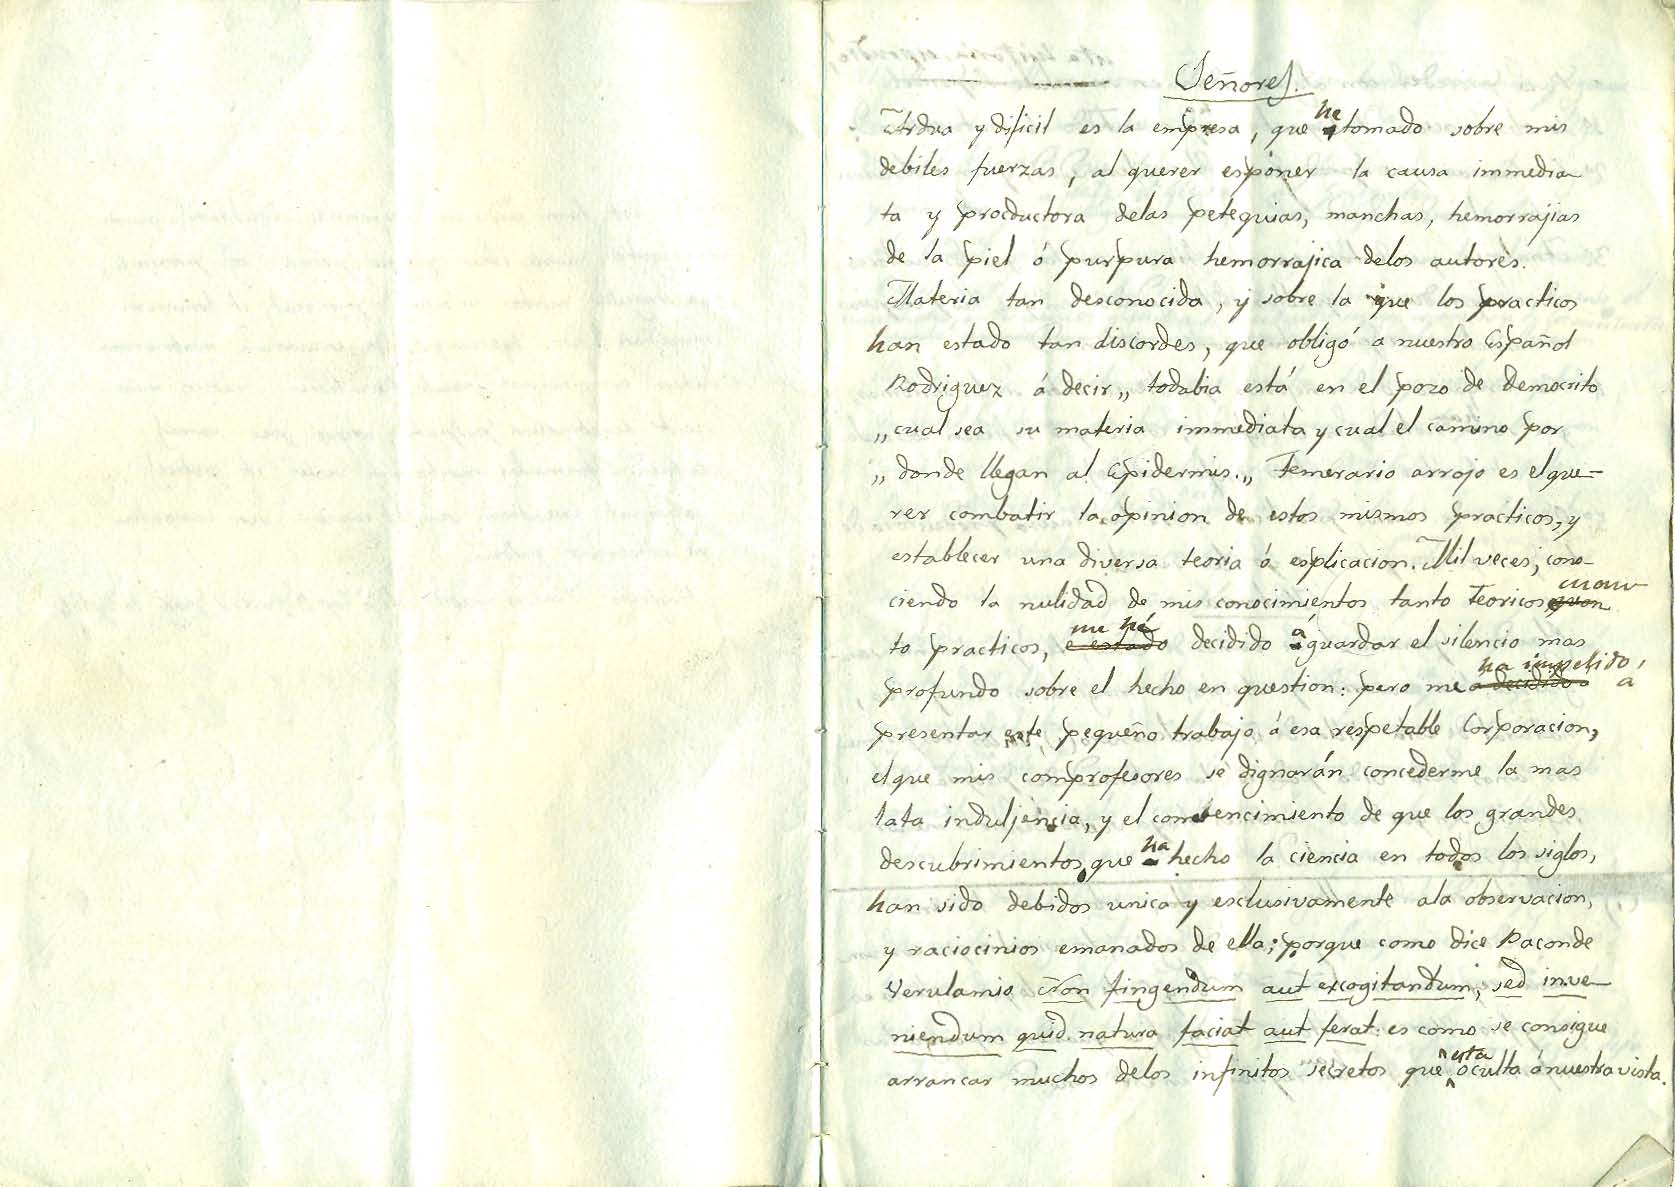 Señores.
Ardua y dificil es la empresa, que he tomado sobre mis
debiles fuerzas, al querer esponer la causa immedia
ta y productora delas petequias, manchas, hemorrajias
de la piel ó purpura hemorrajica delos autores.
Materia tan desconocida, y sobre la que los practicos
han estado tan discordes, que obligó a nuestro Español
Rodriguez á decir „ todabia está en el pozo de Democrito
„ cual sea su materia immediata y cual el camino por
„ donde llegan al Epidermis. „ Temerario arrojo es el que-
rer combatir la opinion de estos mismos practicos, y
establecer una diversa teoria ó esplicacion. Mil veces, cono-
ciendo la nulidad de mis conocimientos tanto Teoricos quan cuan
to practicos, e estado me hé decidido á guardar el silencio mas
profundo sobre el hecho en question: pero me a decidido a ha impelido, a
presentar este pequeño trabajo á esa respetable Corporacion,
el que mis comprofesores se dignarán concederme la mas
lata induljencia, y el convencimiento de que los grandes
descubrimientos que ha hecho la ciencia en todos los siglos,
han sido debidos unica y esclusivamente ala observacion,
y raciocinios emanados de ella; porque como dice Baconde
Verulamio Non fingendum aut excogitandum, sed inve-
niendum quid natura faciat aut ferat: es como se consigue
arrancar muchos delos infinitos secretos que esta oculta á nuestra vista.